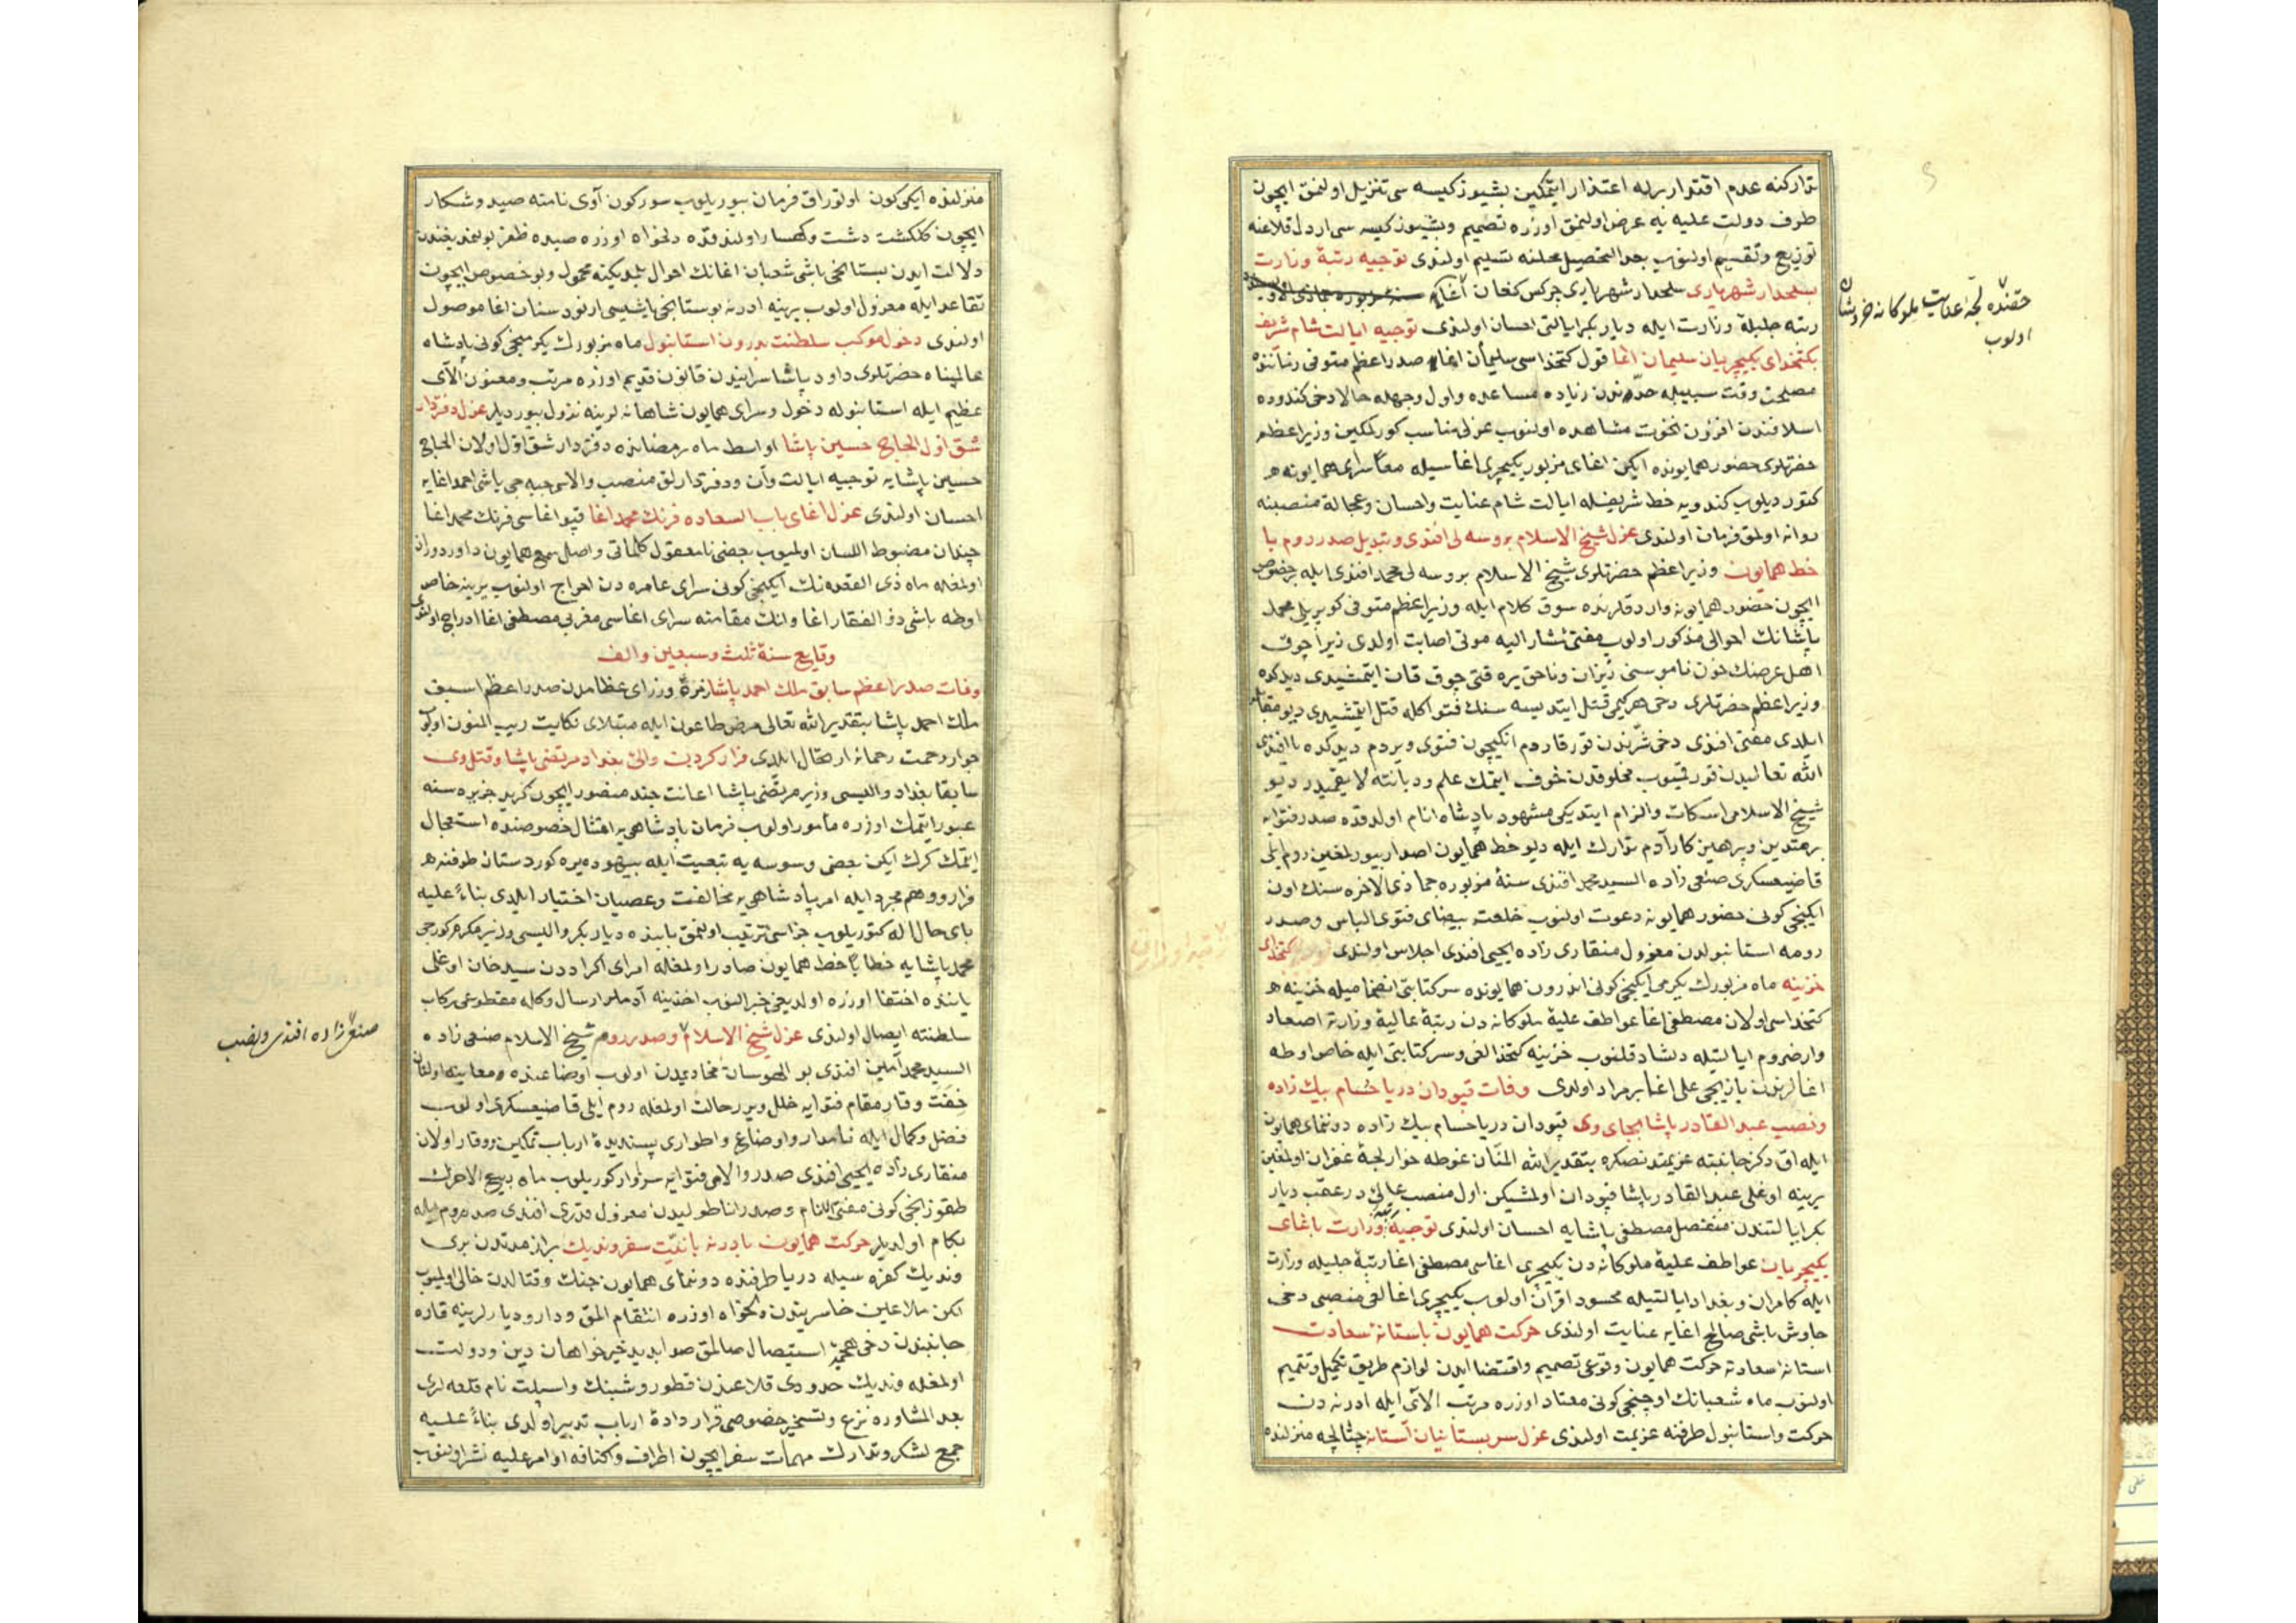 تداركنه عدم اقتدارلرله اعتذار ايتمكين بشيوز كيسه سى تنزيل اولنمق ايچون
طرف دولت عليه يه عرض اولنمق اوزره تصميم وبشيوز كيسه سى اردل قلاعنه
توزيع وتقسيم اولنوب بعد التحصيل محلنه تسليم اولندى توجيه رتبۀ وزارت
بسلحدار شهريارى سلحدار شهريارى چركس كنعان اغا
حقنده لجۀ عنايت ملوكانه خروشان
اولوب
رتبه جليلۀ وزارت ايله ديار بكر ايالتى احسان اولندى توجيه ايالت شام شريف
بكتخداى يكيچريان سليمان اغا قول كتخداسى سليمان اغا صدر اعظم متوفى زماننده
مصلحت وقت سببيله حدندن زياده مساعده واول وجهله حالا دخى كندوده
اسلافندن افزون نخوت مشاهده اولنوب عزلى مناسب كورلمكين وزير اعظم
حضرتلرى حضور همايونده ايكن اغاى مزبور يكيچرى اغاسيله معا سراى همايونه
كتورديلوب كندويه خط شريفله ايالت شام عنايت واحسان وعجالة منصبنه
روانه اولمق فرمان اولندى عزل شيخ الاسلام بروسه لى افندى وتبديل صدر روم با
خط همايون وزير اعظم حضرتلرى شيخ الاسلام بروسه لى محمد افندى ايله بر خصوص
ايچون حضور همايونه واردقلرنده سوق كلام ايله وزير اعظم متوفى كوپريلى محمد
پاشانك احوالى مذكور اولوب مفتئ مشار اليه موتى اصابت اولدى زيرا چوق
اهل عرضك خون ناموسنى ريزان وناحق يره قتى چوق قان ايتمشيدى ديدكده
وزير اعظم حضرتلرى دخى هر كيمى قتل ايتديسه سنك فتواكله قتل ايتمشيدى ديو مقابله
ايلدى مفتى افندى دخى شرندن قورقاردم انكيچون فتوى ويردم ديدكده يا افندى
الله تعاليدن قورقميوب مخلوقدن خوف ايتمك علم وديانته لايقميدر ديو
شيخ الاسلامى اسكات والزام ايتديكى مشهود پادشاه انام اولدقده صدر فتوايه
بر متدين وپرهيزكار آدم تدارك ايله ديو خط همايون اصدار بيورلمغين روم ايلى
قاضيعسكرى صنعى زاده السيد محمد افندى سنۀ مزبوره جماذى الاخره سنك اون
ايكنجى كونى حضور همايونه دعوت اولنوب خلعت بيضاى فتوى الباس وصدر
رومه استانبولدن معزول منقارى زاده يحيى افندى اجلاس اولندى كتخداى
خزينه ماه مزبورك يكرمى ايكنجى كونى اندرون همايونده سر كتابتى انضماميله خزينه
كتخداسى اولان مصطفى اغا عواطف عليۀ ملوكانه دن رتبۀ عاليۀ وزارته اصعاد
وارضروم ايالتيله دلشاد قلنوب خزينه كتخدالغى وسر كتابتى ايله خاص اوطه
اغالرندن يازيجى على اغا بر مراد اولدى وفات قپودان دريا حسام بيك زاده
ونصب عبد القادر پاشا بجاى وى قپودان دريا حسام بيك زاده دونمناى همايون
ايله اق دكز جانبنه عزيمتدنصكره بتقدير الله المنان غوطه خوار لجۀ غفران اولمغين
يرينه اوغلى عبد القادر پاشا قپودان اولمشيكن اول منصب عالى در عقب ديار
بكر ايالتندن منفصل مصطفى پاشايه احسان اولندى توجيه رتبۀ وزارت باغاى
يكيچريان عواطف عليۀ ملوكانه دن يكيچرى اغاسى مصطفى اغا رتبۀ جليله وزارت
ايله كامران وبغداد ايالتيله محسود اقران اولوب يكيچرى اغالغى منصبى دخى
چاوش باشى صالح اغايه عنايت اولندى حركت همايون باستانۀ سعادت
استانه سعادته حركت همايون وقوعى تصميم واقتضا ايدن لوازم طريق تكميل وتتميم
اولنوب ماه شعبانك اوچنجى كونى معتاد اوزره مرتب آلاى ايله ادرنه دن
حركت واستانبول طرفنه عزيمت اولندى عزل سر بستانيان آستانه چتالجه منزلنده
منزلنده ايكى كون اوتوراق فرمان بيوريلوب سوركون آوى نامنه صيد وشكار
ايچون كلكشت دشت وكهسار اولندقده دلخواه اوزره صيده ظفر بولنمديغندن
دلالت ايدن بستانجى باشى شعبان اغانك احوال بلمديكنه محمول وبو خصوص ايچون
تقاعد ايله معزول اولوب يرينه ادرنه بوستانجى باشيسى ارنود سنان اغا موصول
اولندى دخول موكب سلطنت بدرون استانبول ماه مزبورك يكرمنجى كونى پادشاه
عالمپناه حضرتلرى داود پاشا سرايندن قانون قديم اوزره مرتب ومعنون آلاى
عظيم ايله استانبوله دخول وسراى همايون شاهانه لرينه نزول بيورديلر عزل دفتردار
شق اول الحاج حسين پاشا اواسط ماه رمضانده دفتردار شق اول اولان الحاج
حسين پاشايه توجيه ايالت وان ودفتردارلق منصب والاسى جبه جى باشى احمد اغايه
احسان اولندى عزل اغاى باب السعاده فرنك محمد اغا قپو اغاسى فرنك محمد اغا
چندان مضبوط اللسان اولميوب بعضى نامعقول كلماتى واصل سمع همايون داور دوران
اولمغله ماه ذى القعده نك ايكنجى كونى سراى عامره دن اخراج اولنوب يرينه خاص
اوطه باشى ذو الفقار اغا وانك مقامنه سراى اغاسى مغربى مصطفى اغا ادراج اولندى
وقايع سنۀ ثلث وسبعين والف
وفات صدر اعظم سابق ملك احمد پاشا وزراى عظامدن صدر اعظم اسبق
ملك احمد پاشا بتقدير الله تعالى مرض طاعون ايله مبتلاى نكايت ريب المنون اولوب
جوار رحمت رحمانه ارتحال ايلدى فرار كردن والئ بغداد مرتضى پاشا وقتل وى
سابقا بغداد واليسى وزير مرتضى پاشا اعانت جند منصور ايچون كريد جزيره سنه
عبور ايتمك اوزره مأمور اولوب فرمان پادشاهى يه امتثال خصوصنده استعجال
ايتمك كرك ايكن بعضى وسوسه يه تبعيت ايله بيهوده يره كوردستان طرفنه
فرار ووهم مجرد ايله امر پادشاهى يه مخالفت وعصيان اختيار ايلدى بناءً عليه
باى حال اله كتوريلوب جزاسى ترتيب اولنمق بابنده ديار بكر واليسى وزير مكرم كورجى
محمد پاشايه خطابا خط همايون صادر اولمغله امراى اكراددن سيد خان اوغلى
ياننده اختفا اوزره اولديغى خبر النوب اخذينه آدملر ارسال وكله مقطوعى ركاب
سلطنته ايصال اولندى عزل شيخ الاسلام وصدر روم شيخ الاسلام صنعى زاده
صنعى زاده افندى ونصب
السيد محمد آمين افندى بو الهوسان مخاديمدن اولوب اوضاعنده معاينه اولنان
خفت وقار مقام فتوايه خلل ويرر حالت اولمغله روم ايلى قاضيعسكرى اولوب
فضل وكمال ايله نامدار واوضاع واطوارى پسنديدۀ ارباب تمكين ووقار اولان
منقارى زاده يحيى افندى صدر والاى فتوايه سزاوار كوريلوب ماه ربيع الاخرك
طقوزنجى كونى مفتئ الانام وصدر اناطوليدن معزول قدرى افندى صدر روم ايله
بكام اولديلر حركت همايون بادرنه با نيت سفر ونديك براز مدتدن برى
ونديك كفره سيله دريا طرفنده دونمناى همايون جنك وقتالدن خالى اولميوب
لكن ملاعين خاسريندن دلخواه اوزره انتقام المق ودار وديارلرينه قاره
جانبندن دخى هجمۀ استيصال صالمق صوابديد خيرخواهان دين ودولت
اولمغله ونديك حدودى قلاعندن قطور وشبنك واسپلت نام قلعه لرى
بعد المشاوره نزع وتسخير خصوصى قرار دادۀ ارباب تدبير اولدى بناءً عليه
جمع لشكر وتدارك مهمات سفر ايچون اطراف واكنافه اوامر عليه نشر اولنوب